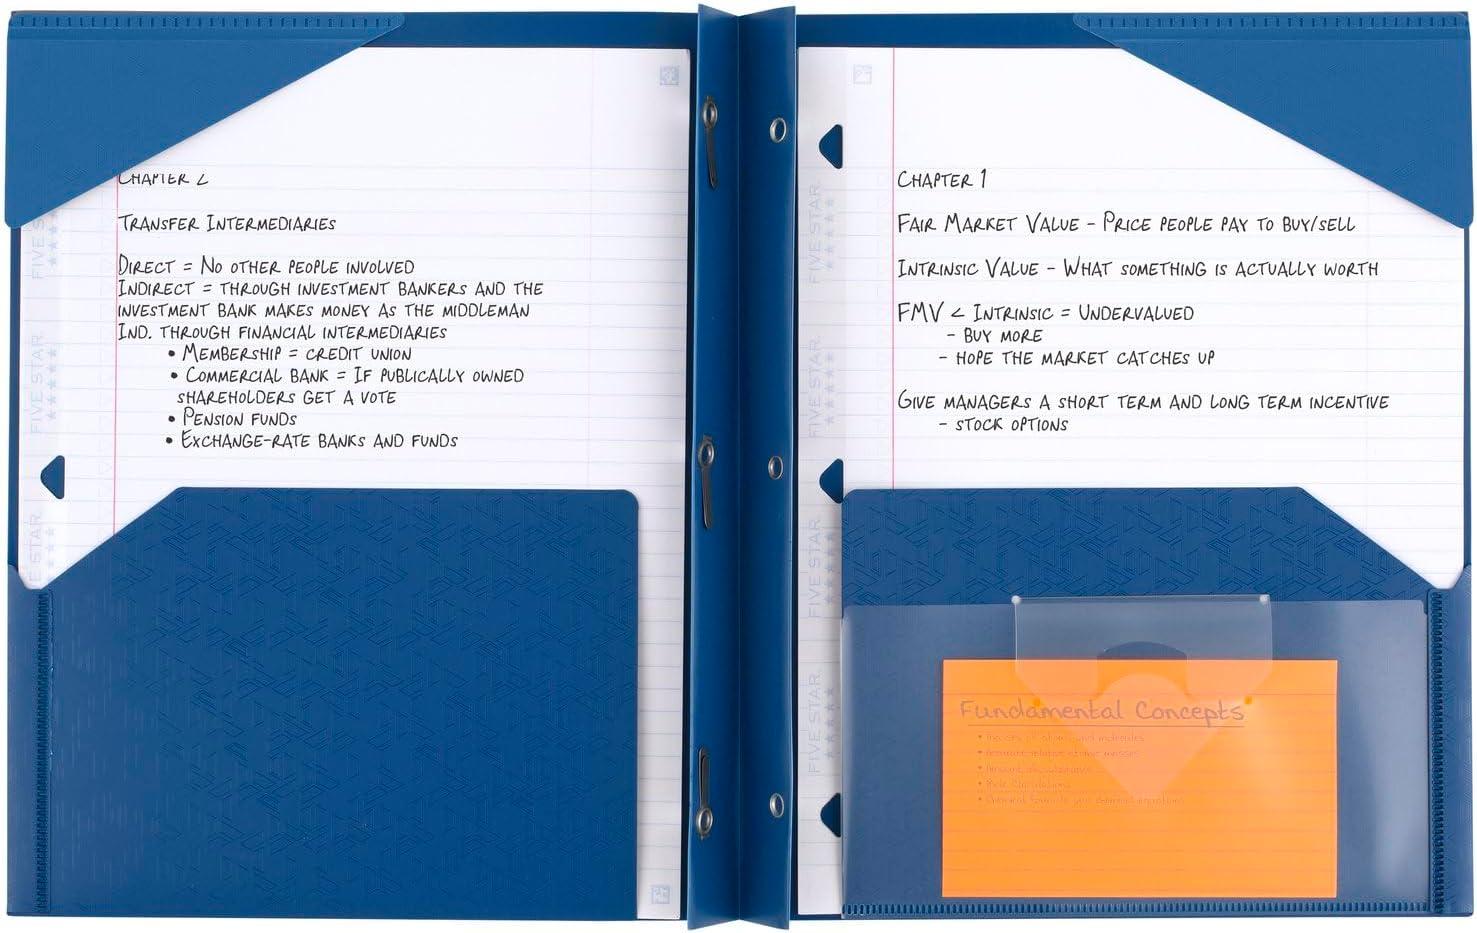 CHAPTER 2
TRANSFER INTERMEDIARIES
DIRECT = NO OTHER PEOPLE INVOLVED
INDIRECT = THROUGH INVESTMENT BANKERS AND THE
INVESTMENT BANK MAKES MONEY AS THE MIDDLEMAN
IND. THROUGH FINANCIAL INTERMEDIARIES
• MEMBERSHIP = CREDIT UNION
• COMMERCIAL BANK = IF PUBLICALLY OWNED
SHAREHOLDERS GET A VOTE
• PENSION FUNDS
• EXCHANGE-RATE BANKS AND FUNDS
FIVE STAR
FIVE STAR
FIVE STAR
CHAPTER 1
FAIR MARKET VALUE - PRICE PEOPLE PAY TO BUY/SELL
INTRINSIC VALUE - WHAT SOMETHING IS ACTUALLY WORTH
FMV < INTRINSIC = UNDERVALUED
- BUY MORE
- HOPE THE MARKET CATCHES UP
GIVE MANAGERS A SHORT TERM AND LONG TERM INCENTIVE
- STOCK OPTIONS
FIVE STAR
FIVE STAR
FIVE STAR
FIVE STAR
Fundamental Concepts
and molecules